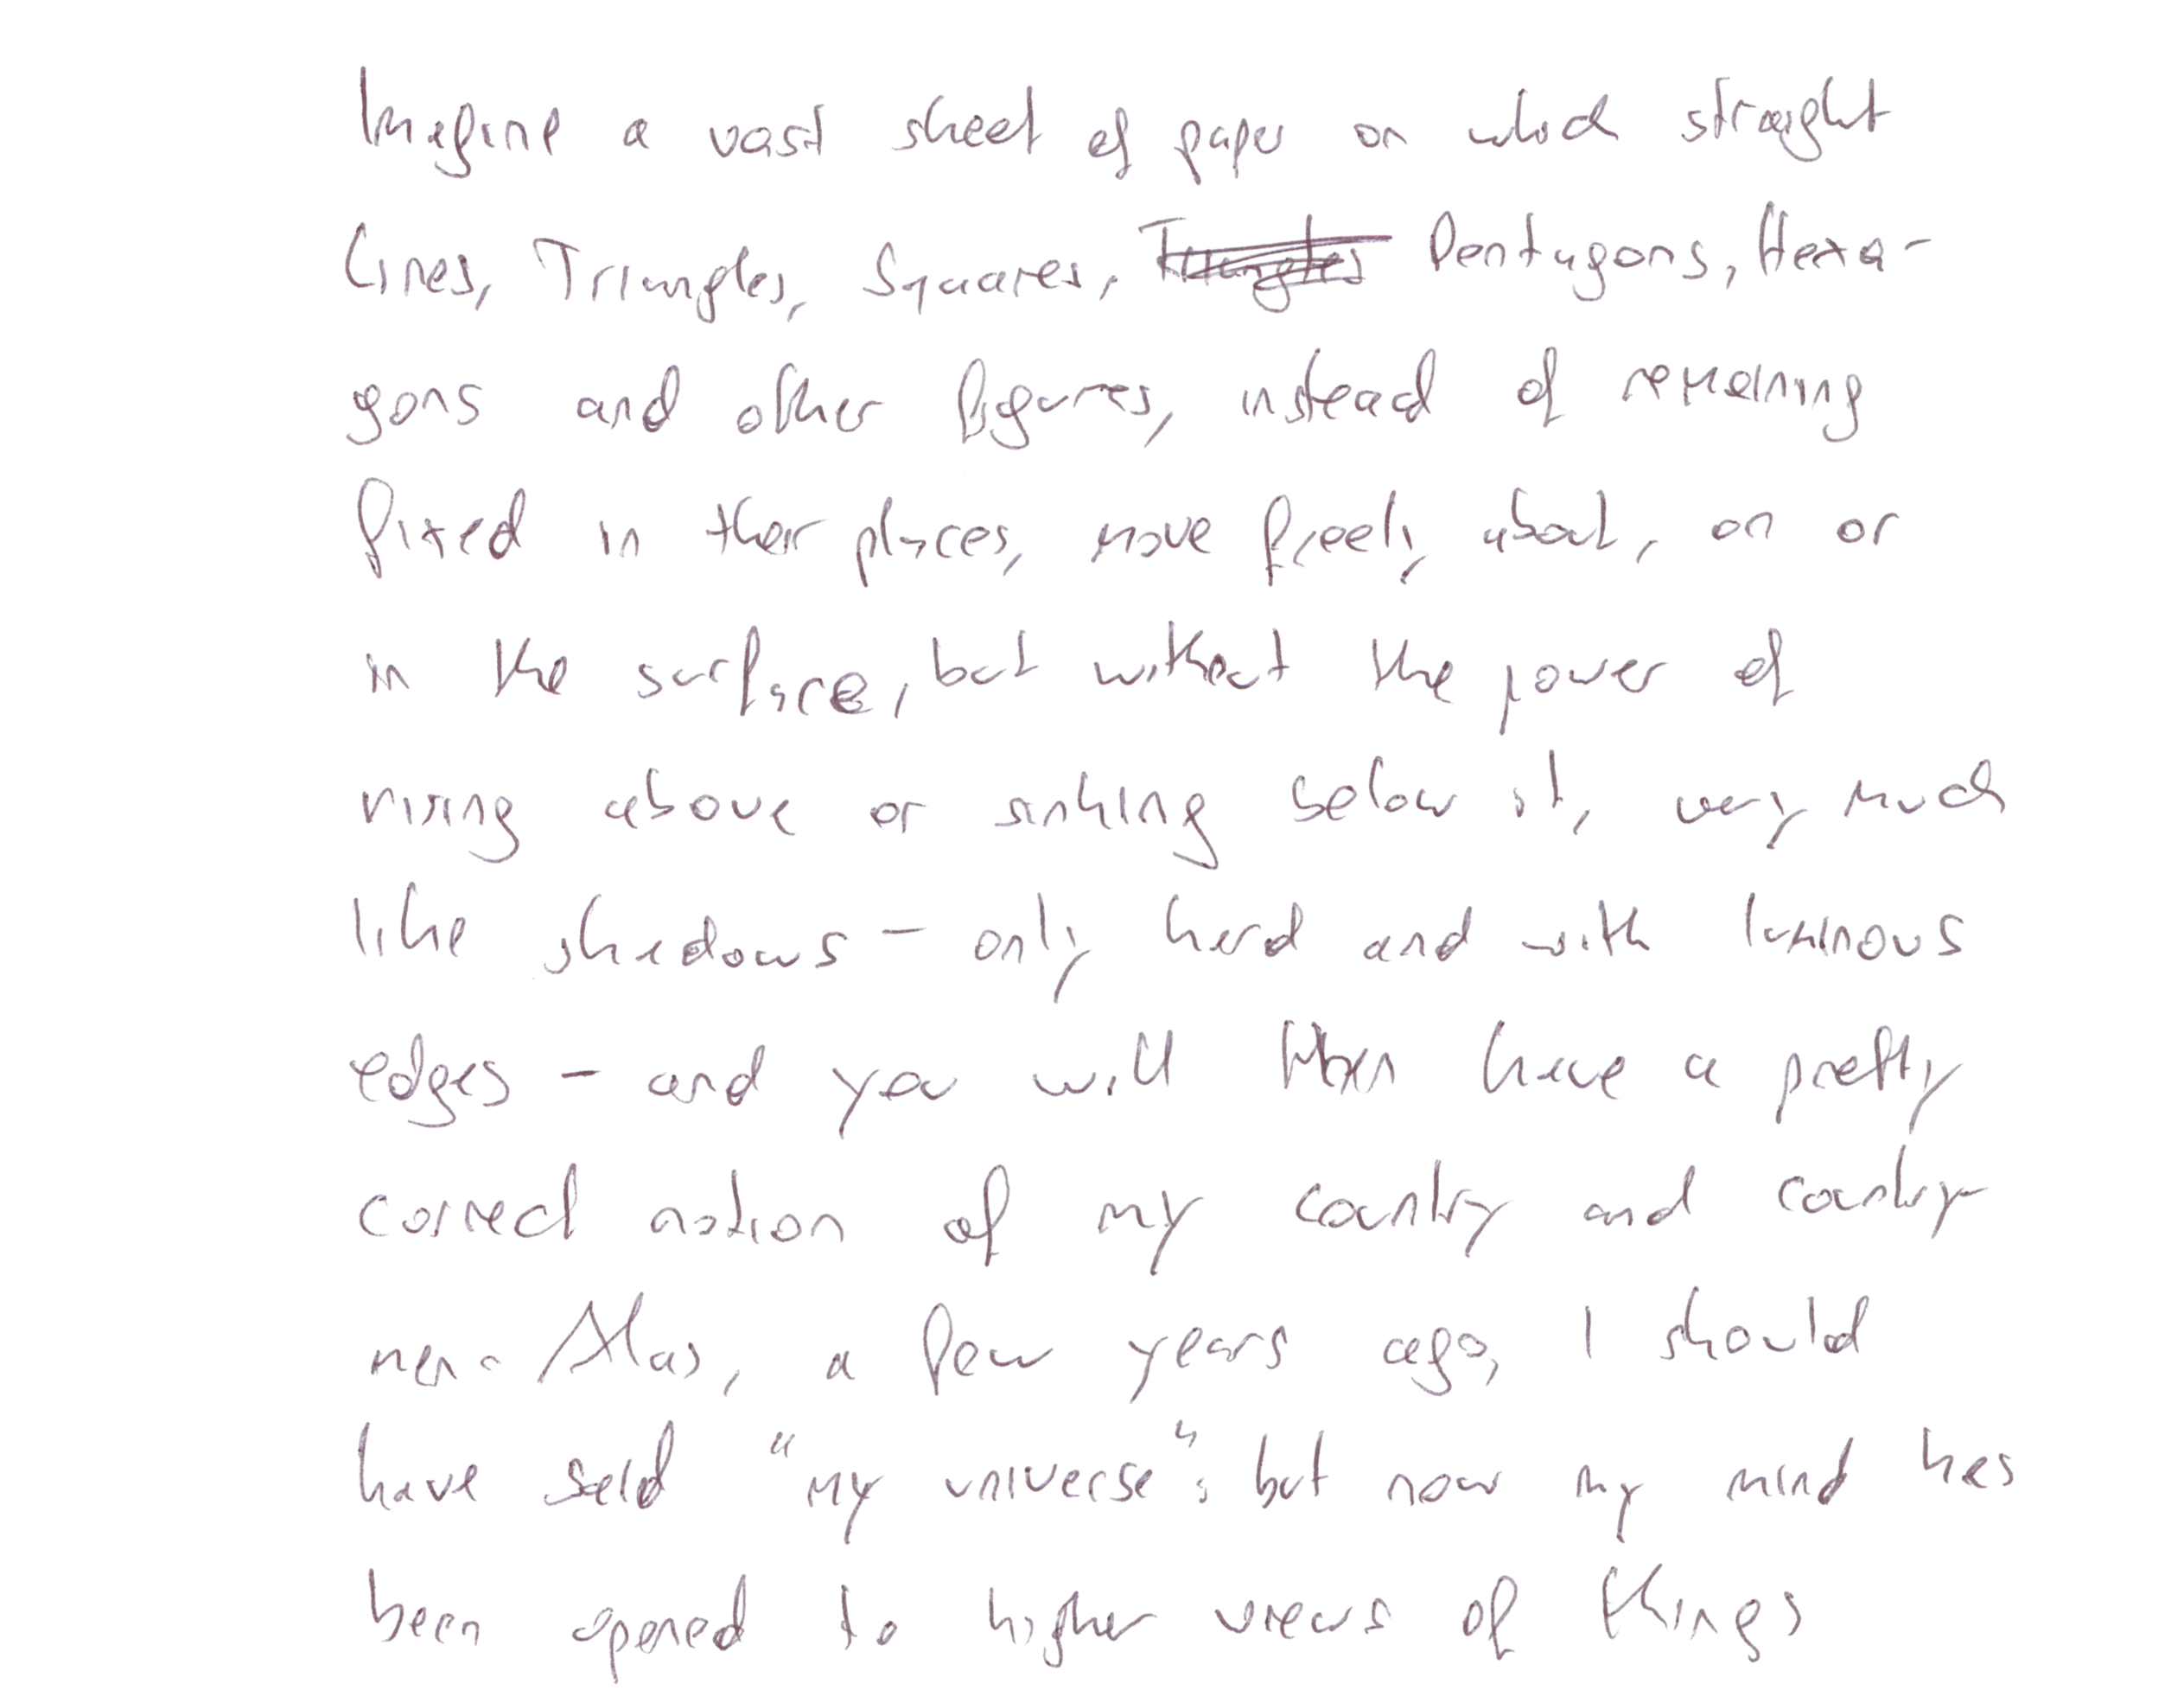 Imagine a vast sheet of paper on which straight
Lines, Triangles, Squares, Triangles Pentagons, Hexa-
gons and other figures, instead of remaining
fixed in their places, move freely about, on or
in the surface, but without the power of
rising above or sinking below it, very much
like shadows - only hard and with luminous
edges - and you will then have a pretty
correct notion of my country and country-
men. Alas, a few years ago, I should
have said "my universe": but now my mind has
been opened to higher views of things